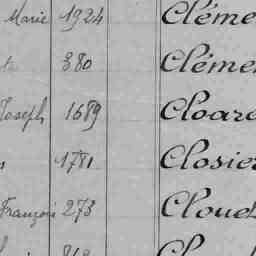 Marie 1924 Cléme
380 Cléme
Joseph 1689 Cloare
1781 Closier
François 273 Cloue